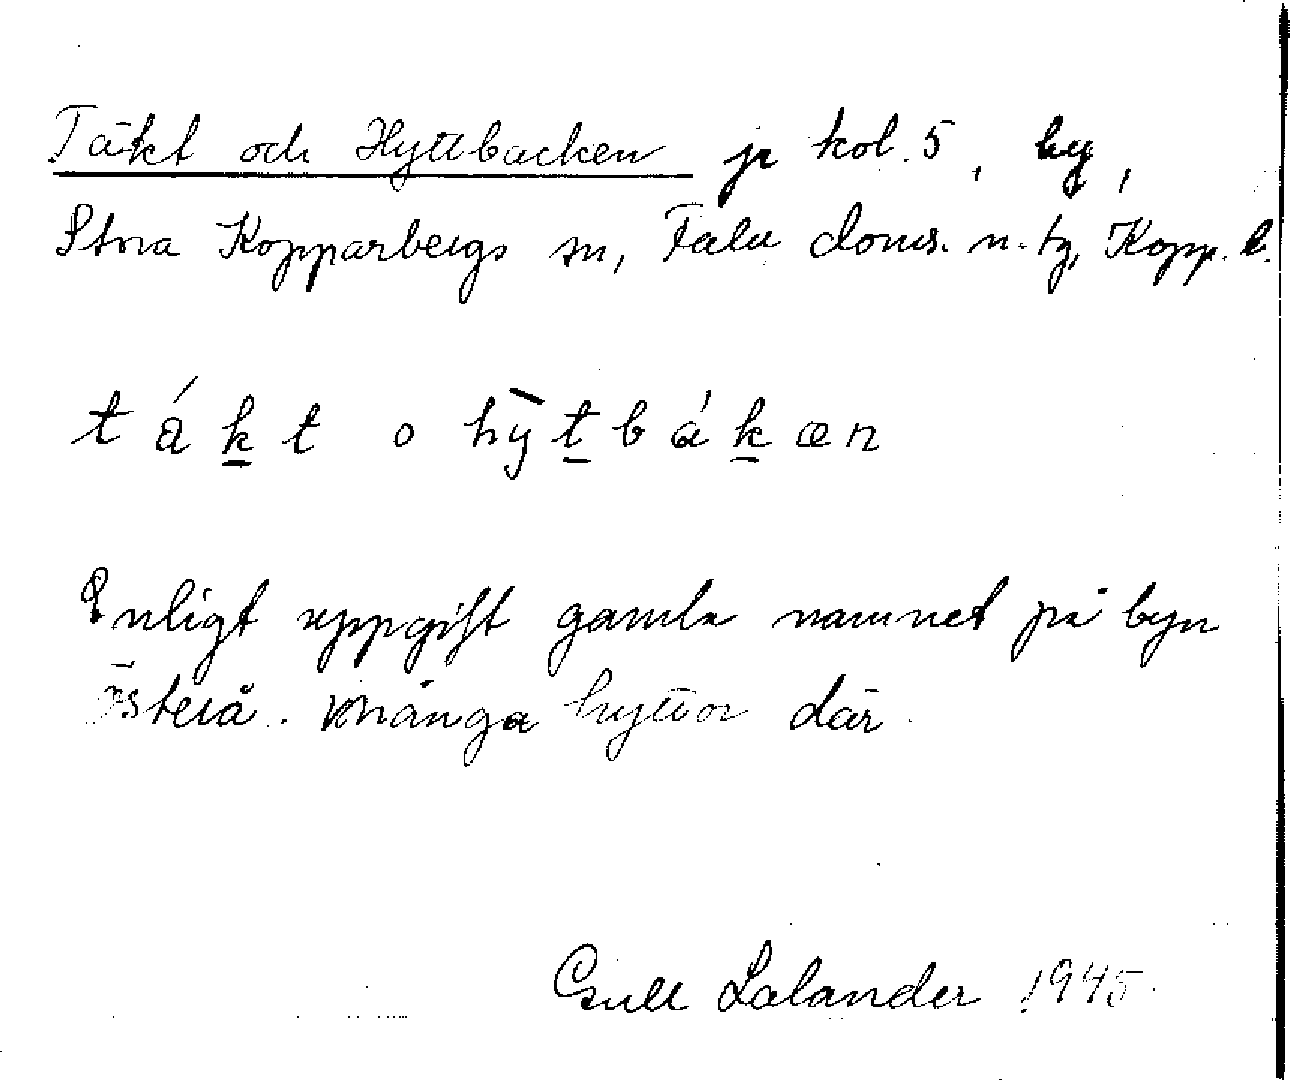 Täkt och Hyttbacken jr kol. 5, by,
Stora Kopparbergs sn, Falu doms. n. tg, Kopp. l.
tákt o hy̆tbákæn
Enligt uppgift gamla namnet på byn
Österå. Många hyttor där.
Gull Lalander 1945.